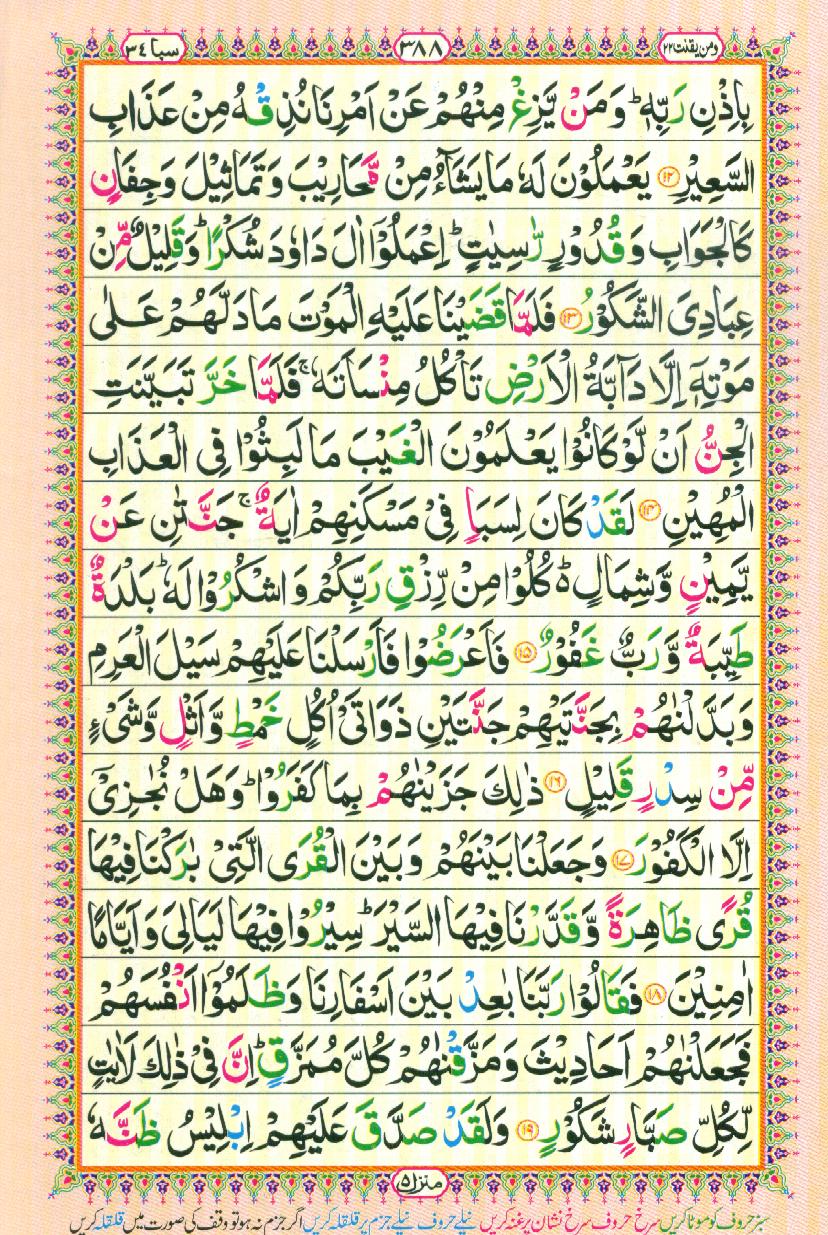 ومن یقنت ۲۲
۳۸۸
سبا ۳٤
بِاِذْنِ رَبِّهٖ ؕ وَ مَنْ یَّزِغْ مِنْهُمْ عَنْ اَمْرِنَا نُذِقْهُ مِنْ عَذَابِ
السَّعِیْرِ ﴿۱۲﴾ یَعْمَلُوْنَ لَهٗ مَا یَشَآءُ مِنْ مَّحَارِیْبَ وَ تَمَاثِیْلَ وَ جِفَانٍ
كَالْجَوَابِ وَ قُدُوْرٍ رّٰسِیٰتٍ ؕ اِعْمَلُوْۤا اٰلَ دَاوٗدَ شُكْرًا ؕ وَ قَلِیْلٌ مِّنْ
عِبَادِیَ الشَّكُوْرُ ﴿۱۳﴾ فَلَمَّا قَضَیْنَا عَلَیْهِ الْمَوْتَ مَا دَلَّهُمْ عَلٰی
مَوْتِهٖۤ اِلَّا دَآبَّةُ الْاَرْضِ تَاْكُلُ مِنْسَاَتَهٗ ۚ فَلَمَّا خَرَّ تَبَیَّنَتِ
الْجِنُّ اَنْ لَّوْ كَانُوْا یَعْلَمُوْنَ الْغَیْبَ مَا لَبِثُوْا فِی الْعَذَابِ
الْمُهِیْنِ ﴿۱۴﴾ لَقَدْ كَانَ لِسَبَاٍ فِیْ مَسْكَنِهِمْ اٰیَةٌ ۚ جَنَّتٰنِ عَنْ
یَّمِیْنٍ وَّ شِمَالٍ ؕ۬ كُلُوْا مِنْ رِّزْقِ رَبِّكُمْ وَ اشْكُرُوْا لَهٗ ؕ بَلْدَةٌ
طَیِّبَةٌ وَّ رَبٌّ غَفُوْرٌ ﴿۱۵﴾ فَاَعْرَضُوْا فَاَرْسَلْنَا عَلَیْهِمْ سَیْلَ الْعَرِمِ
وَ بَدَّلْنٰهُمْ بِجَنَّتَیْهِمْ جَنَّتَیْنِ ذَوَاتَیْ اُكُلٍ خَمْطٍ وَّ اَثْلٍ وَّ شَیْءٍ
مِّنْ سِدْرٍ قَلِیْلٍ ﴿۱۶﴾ ذٰلِكَ جَزَیْنٰهُمْ بِمَا كَفَرُوْا ؕ وَ هَلْ نُجٰزِیْۤ
اِلَّا الْكَفُوْرَ ﴿۱۷﴾ وَ جَعَلْنَا بَیْنَهُمْ وَ بَیْنَ الْقُرَی الَّتِیْ بٰرَكْنَا فِیْهَا
قُرًی ظَاهِرَةً وَّ قَدَّرْنَا فِیْهَا السَّیْرَ ؕ سِیْرُوْا فِیْهَا لَیَالِیَ وَ اَیَّامًا
اٰمِنِیْنَ ﴿۱۸﴾ فَقَالُوْا رَبَّنَا بٰعِدْ بَیْنَ اَسْفَارِنَا وَ ظَلَمُوْۤا اَنْفُسَهُمْ
فَجَعَلْنٰهُمْ اَحَادِیْثَ وَ مَزَّقْنٰهُمْ كُلَّ مُمَزَّقٍ ؕ اِنَّ فِیْ ذٰلِكَ لَاٰیٰتٍ
لِّكُلِّ صَبَّارٍ شَكُوْرٍ ﴿۱۹﴾ وَ لَقَدْ صَدَّقَ عَلَیْهِمْ اِبْلِیْسُ ظَنَّهٗ
منزل ۵
سبز حروف کو موٹا کریں سرخ حروف سرخ نشان پر غنہ کریں نیلے حروف نیلے جزم پر قلقلہ کریں اگر جزم نہ ہو تو وقف کی صورت میں قلقلہ کریں